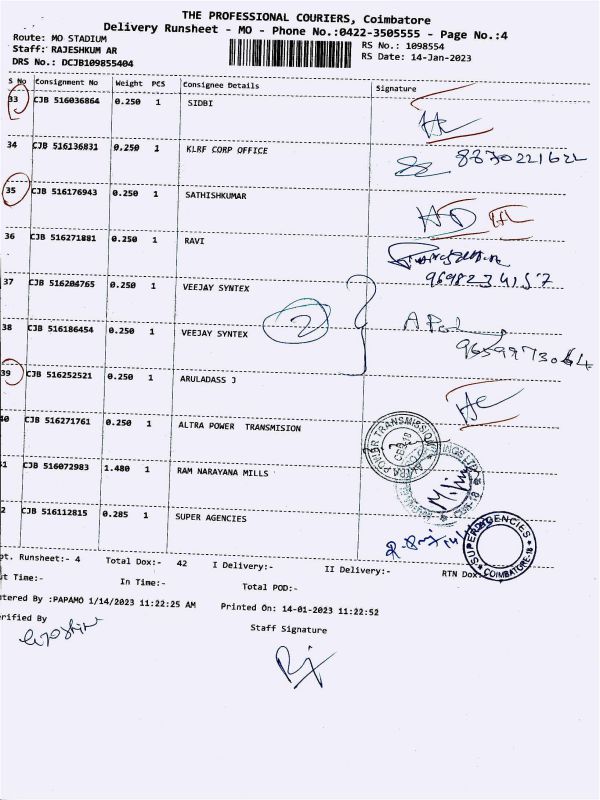 THE PROFESSIONAL COURIERS, Coimbatore
Delivery Runsheet - MO - Phone No.:0422-3505555 - Page No.:4
Route: MO STADIUM
RS No.: 1098554
Staff: RAJESHKUM AR
RS Date: 14-Jan-2023
DRS No.: DCJB109855404
S No Consignment No Weight PCS Consignee Details Signature
33 CJB 516036864 0.250 1 SIDBI
34 CJB 516136831 0.250 1 KLRF CORP OFFICE
8870221622
35 CJB 516176943 0.250 1 SATHISHKUMAR
36 CJB 516271881 0.250 1 RAVI
9698234157
37 CJB 516204765 0.250 1 VEEJAY SYNTEX
2
38 CJB 516186454 0.250 1 VEEJAY SYNTEX
39 CJB 516252521 0.250 1 ARULADASS J
40 CJB 516271761 0.250 1 ALTRA POWER TRANSMISION
41 CJB 516072983 1.480 1 RAM NARAYANA MILLS
2 CJB 516112815 0.285 1 SUPER AGENCIES
SUPER AGENCIES
COIMBATORE-18
pt. Runsheet:- 4 Total Dox:- 42 I Delivery:- II Delivery:- RTN Dox:
ut Time:- In Time:- Total POD:-
tered By :PAPAMO 1/14/2023 11:22:25 AM Printed On: 14-01-2023 11:22:52
erified By
Staff Signature